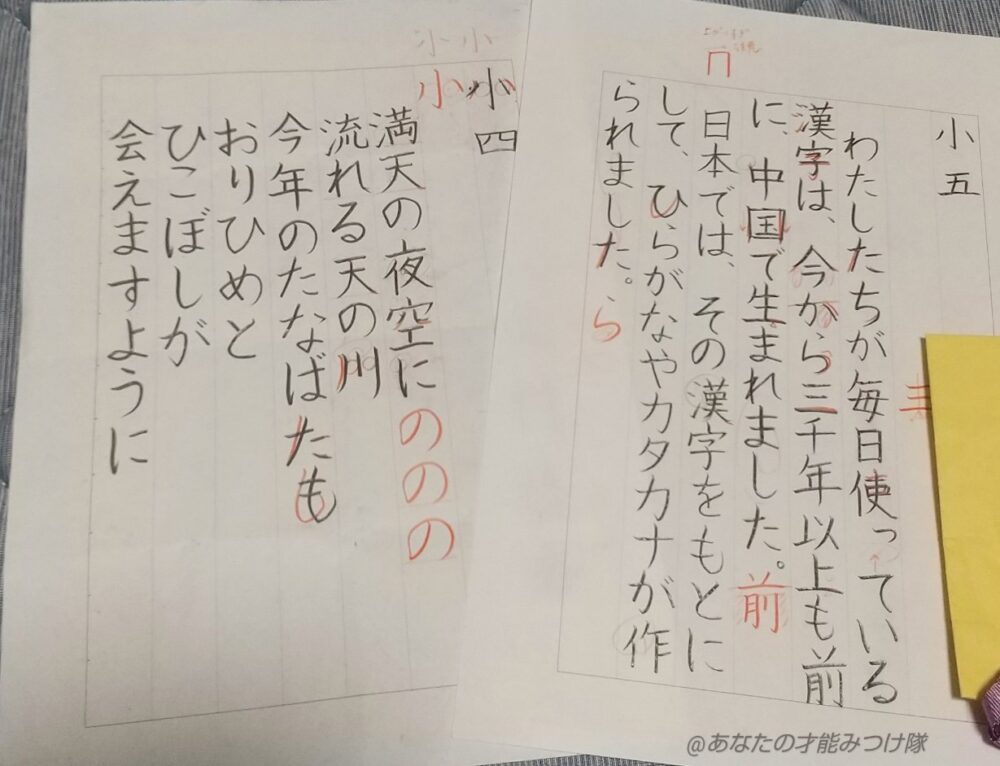 小五
わたしたちが毎日使っている
漢字は、今から三千年以上も前
に、中国で生まれました。前
日本では、その漢字をもとに
して、ひらがなやカタカナが作
られました。ら
小四
満天の夜空にののの
流れる天の川
今年のたなばたも
おりひめと
ひこぼしが
会えますように
小小
小
@あなたの才能みつけ隊